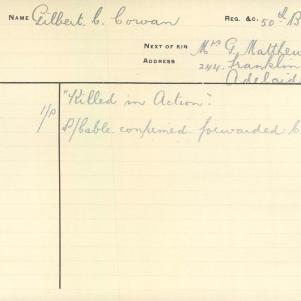 NAME Gilbert C. Cowan REG. &C. 50th B
NEXT OF KIN Mrs G. Matthew
ADDRESS 244. Franklin
Adelaid
"Killed in Action".
1/P P/Cable confirmed forwarded